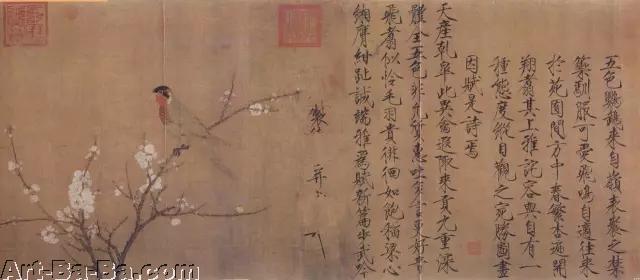 五色鸚鵡來自嶺表養之禁
籞馴服可愛飛鳴自適往來
於苑囿間方中春繁杏遍開
翔翥其上雅詫容與自有一
種態度縱目觀之宛勝圖畫
因賦是詩焉
天產乾皐此異禽遐陬來貢九重深
體全五色非凡質惠吐多言更好音
飛翥似憐毛羽貴徘徊如飽稻粱心
緗膺紺趾誠端雅爲賦新篇步武吟
製
并
Art-Ba-Ba.com
Art-Ba-Ba.com